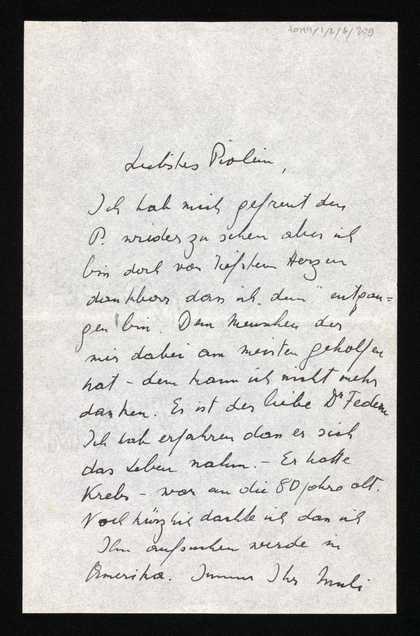 Liebstes Piolein,
Ich hab mich gefreut den
P. wieder zu sehen aber ich
bin doch von tiefstem Herzen
dankbar dass ich dem "entgan=
gen" bin. Dem Menschen der
mir dabei am meisten geholfen
hat – dem kann ich nicht mehr
danken. Es ist der liebe Dr Federn
Ich hab erfahren dass er sich
das Leben nahm. – Er hatte
Krebs – war an die 80 Jahre alt.
Noch kürzlich dachte ich dass ich
Ihn aufsuchen werde in
Amerika. Immer Ihr